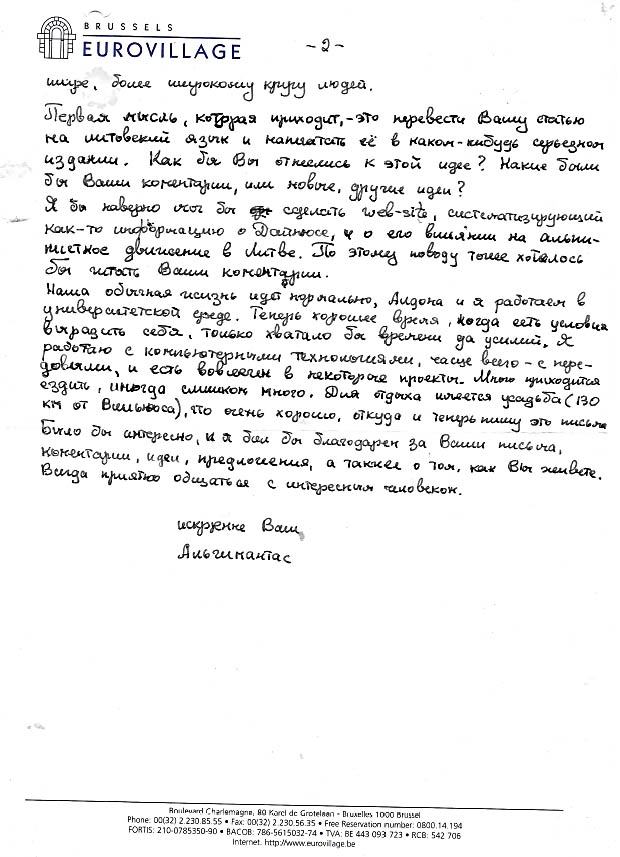 BRUSSELS
EUROVILLAGE
-2-
шире, более широкому кругу людей.
Первая мысль, которая приходит,-это перевести Вашу статью
на литовский язык и напечатать её в каком-нибудь серьезном
издании. Как бы Вы отнеслись к этой идее? Какие были
бы Ваши коментарии, или новые, другие идеи?
Я бы наверно мог бы сделать web-site, систематизирующий
как-то информацию о Дайнюсе, и о его влиянии на альпи-
нистное движение в Литве. По этому поводу тоже хотелось
бы читать Ваши коментарии.
Наша обычная жизнь идет нормально, Алдона и я работаем в
университетской среде. Теперь хорошее время, когда есть условия
выразить себя, только хватало бы времени да усилий. Я
работаю с компьютерными технологиями, чаще всего - с пере-
довыми, и есть вовлечен в некоторые проекты. Много приходится
ездить, иногда слишком много. Для отдыха имеется усадьба (130
км от Вильнюса), что очень хорошо, откуда и теперь пишу это письмо
Было бы интересно, и я был бы благодарен за Ваши письма,
коментарии, идеи, предложения, а также о том, как Вы живете.
Всегда приятно общаться с интересным человеком.
искренне Ваш,
Альгимантас
Boulevard Charlemagne, 80 Karel de Grotelaan - Bruxelles 1000 Brussel
Phone: 00(32) 2.230.85.55 • Fax: 00(32) 2.230.56.35 • Free Reservation number: 0800.14.194
FORTIS: 210-0785350-90 • BACOB: 786-5615032-74 • TVA: BE 443 093 723 • RCB: 542 706
Internet: http://www.eurovillage.be